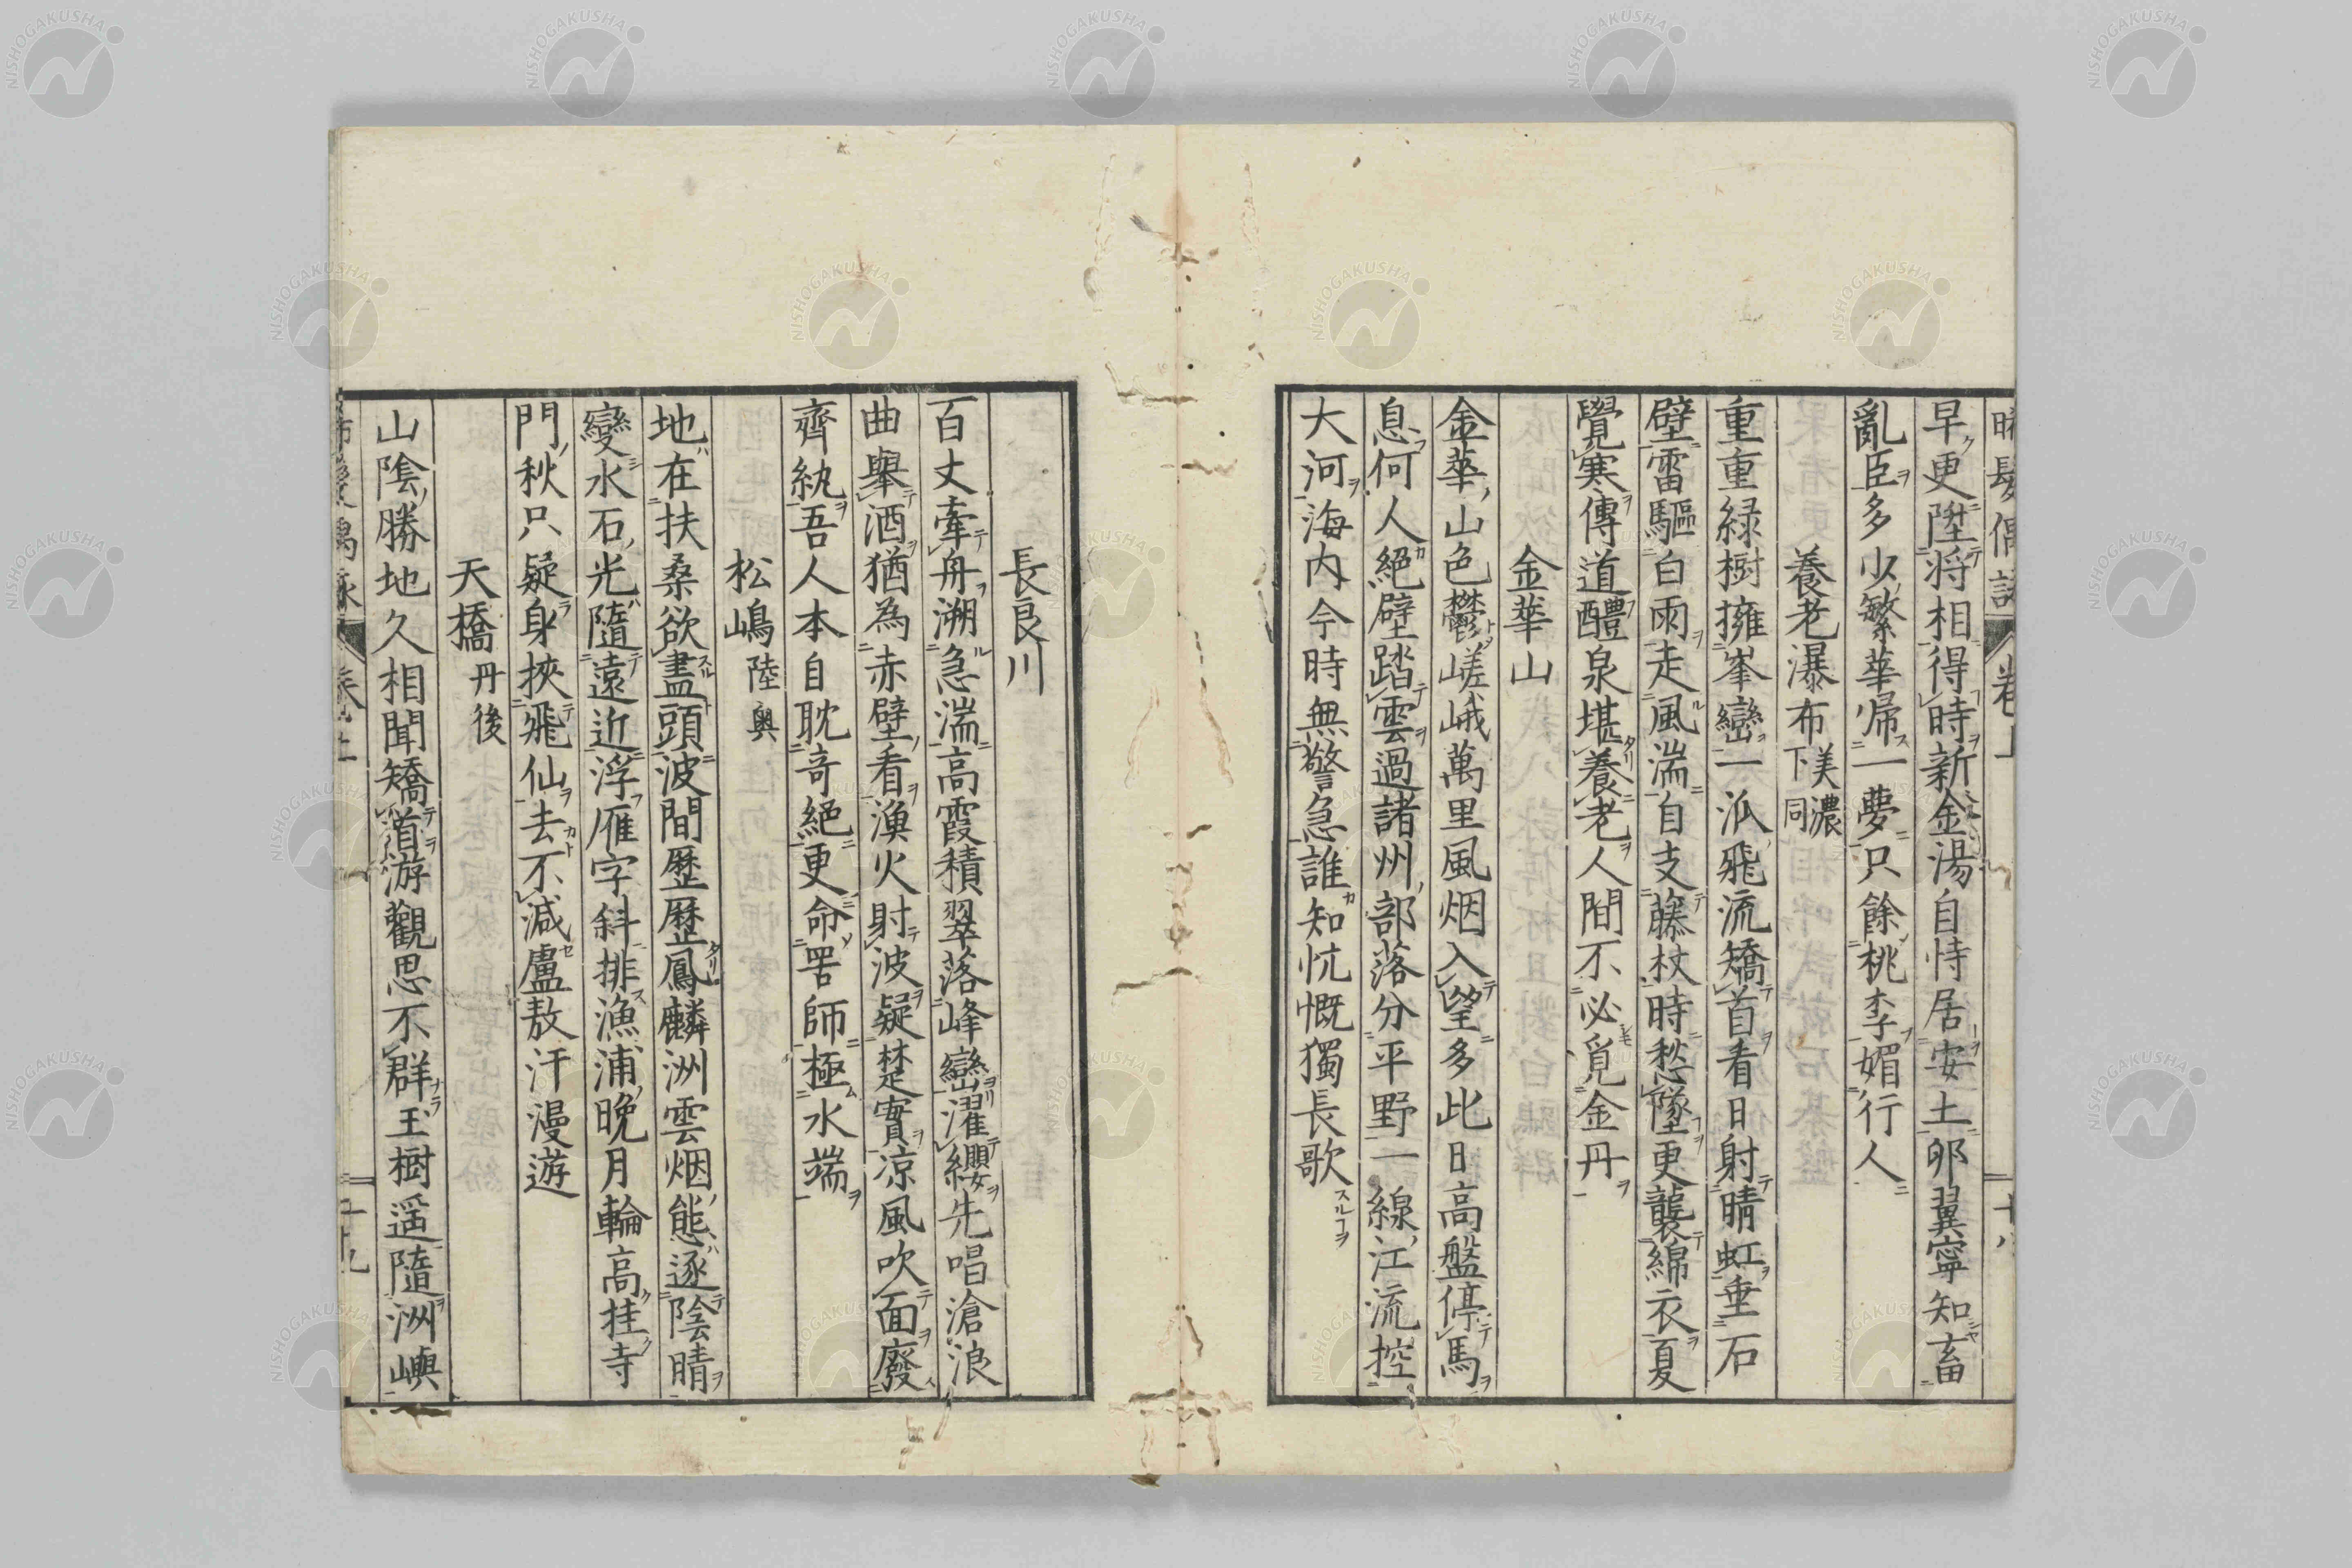 早更陞將相得時新金湯自恃居安土卵翼寧知畜
亂臣多少繁華帰一夢只餘桃李媚行人
養老瀑布美濃下同
重重緑樹擁峯巒一派飛流矯首看日射晴虹垂石
壁雷驅白雨走風湍自支藤杖時愁墜更襲綿衣夏
覺寒傳道醴泉堪養老人間不必覓金丹
金華山
金華山色鬱嵯峨萬里風烟入望多此日高盤停馬
息何人絕壁踏雲過諸州部落分平野一線江流控
大河海内今時無警急誰知忼慨獨長歌
長良川
百丈牽舟溯急湍高霞積翠落峰巒濯纓先唱滄浪
曲舉酒猶為赤壁看漁火射波疑楚實凉風吹面廢
齊紈吾人本自耽竒絕更命罟師極水端
松嶋陸奥
地在扶桑欲盡頭波間歷歷鳳麟洲雲烟能逐陰晴
變水石光隨遠近浮雁字斜排漁浦晚月輪高挂寺
門秋只疑身挾飛仙去不減盧敖汗漫遊
天橋丹後
山陰勝地久相聞矯首游觀思不群玉樹遥隨洲嶼
NISHOGAKUSHA